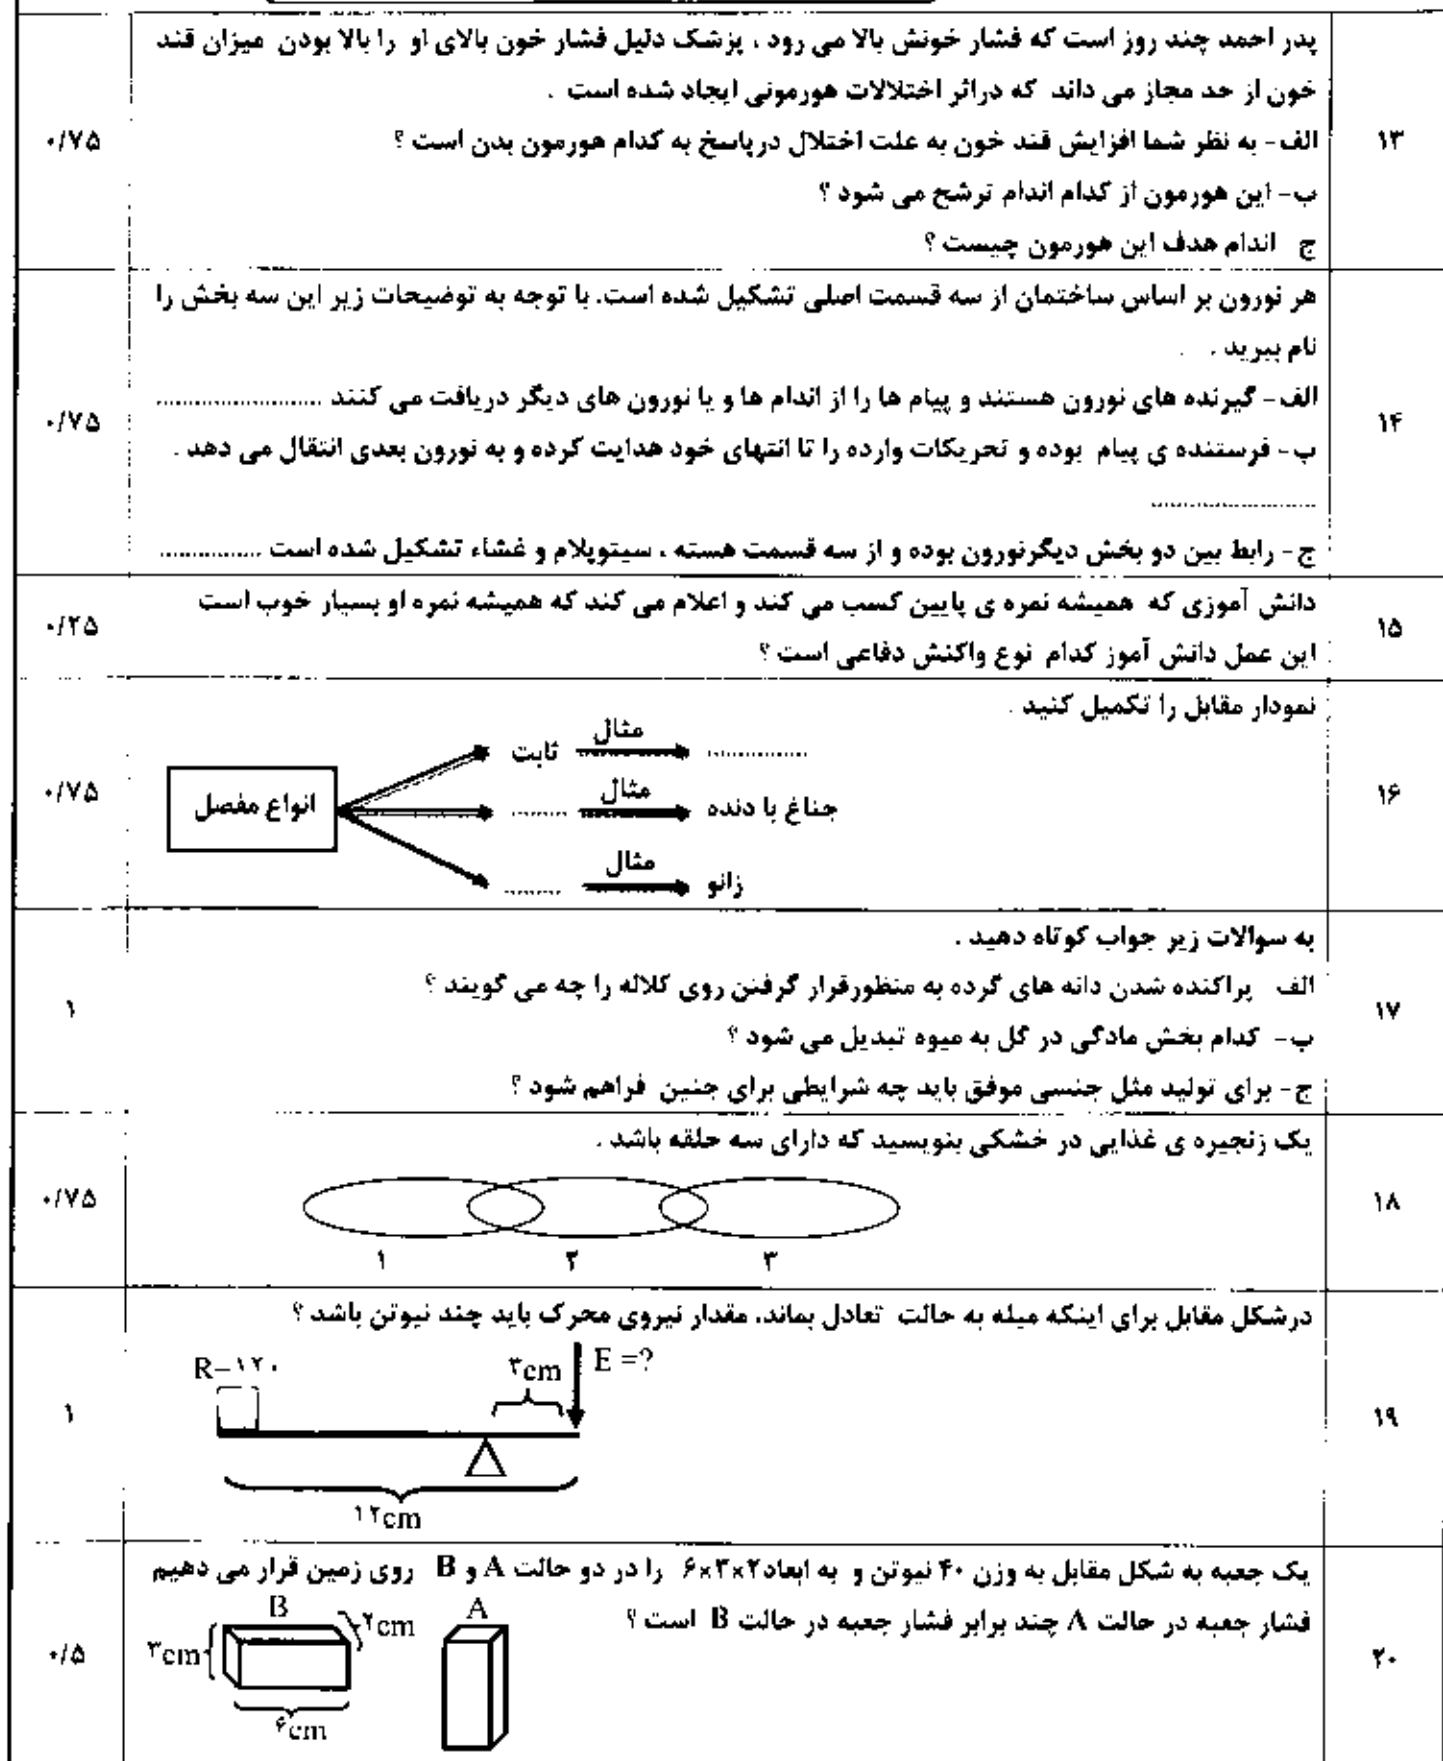 ۱۳
پدر احمد چند روز است که فشار خونش بالا می رود ، پزشک دلیل فشار خون بالای او را بالا بودن میزان قند
خون از حد مجاز می داند که دراثر اختلالات هورمونی ایجاد شده است .
الف- به نظر شما افزایش قند خون به علت اختلال درپاسخ به کدام هورمون بدن است ؟
ب- این هورمون از کدام اندام ترشح می شود ؟
ج اندام هدف این هورمون چیست ؟
۰/۷۵
۱۴
هر نورون بر اساس ساختمان از سه قسمت اصلی تشکیل شده است. با توجه به توضیحات زیر این سه بخش را
نام ببرید .
الف- گیرنده های نورون هستند و پیام ها را از اندام ها و یا نورون های دیگر دریافت می کنند ........................
ب- فرستنده ی پیام بوده و تحریکات وارده را تا انتهای خود هدایت کرده و به نورون بعدی انتقال می دهد .
........................
ج- رابط بین دو بخش دیگرنورون بوده و از سه قسمت هسته ، سیتوپلام و غشاء تشکیل شده است ...............
۰/۷۵
۱۵
دانش آموزی که همیشه نمره ی پایین کسب می کند و اعلام می کند که همیشه نمره او بسیار خوب است
این عمل دانش آموز کدام نوع واکنش دفاعی است ؟
۰/۲۵
۱۶
نمودار مقابل را تکمیل کنید .
انواع مفصل
ثابت مثال ...............
......... مثال جناغ با دنده
......... مثال زانو
۰/۷۵
۱۷
به سوالات زیر جواب کوتاه دهید .
الف پراکنده شدن دانه های گرده به منظورقرار گرفتن روی کلاله را چه می گویند ؟
ب- کدام بخش مادگی در گل به میوه تبدیل می شود ؟
ج- برای تولید مثل جنسی موفق باید چه شرایطی برای جنین فراهم شود ؟
۱
۱۸
یک زنجیره ی غذایی در خشکی بنویسید که دارای سه حلقه باشد .
۱ ۲ ۳
۰/۷۵
۱۹
درشکل مقابل برای اینکه میله به حالت تعادل بماند، مقدار نیروی محرک باید چند نیوتن باشد ؟
R-۱۲۰
۳cm
E =?
۱۲cm
۱
۲۰
یک جعبه به شکل مقابل به وزن ۴۰ نیوتن و به ابعاد۲×۳×۶ را در دو حالت A و B روی زمین قرار می دهیم
فشار جعبه در حالت A چند برابر فشار جعبه در حالت B است ؟
B
A
۲cm
۳cm
۶cm
۰/۵